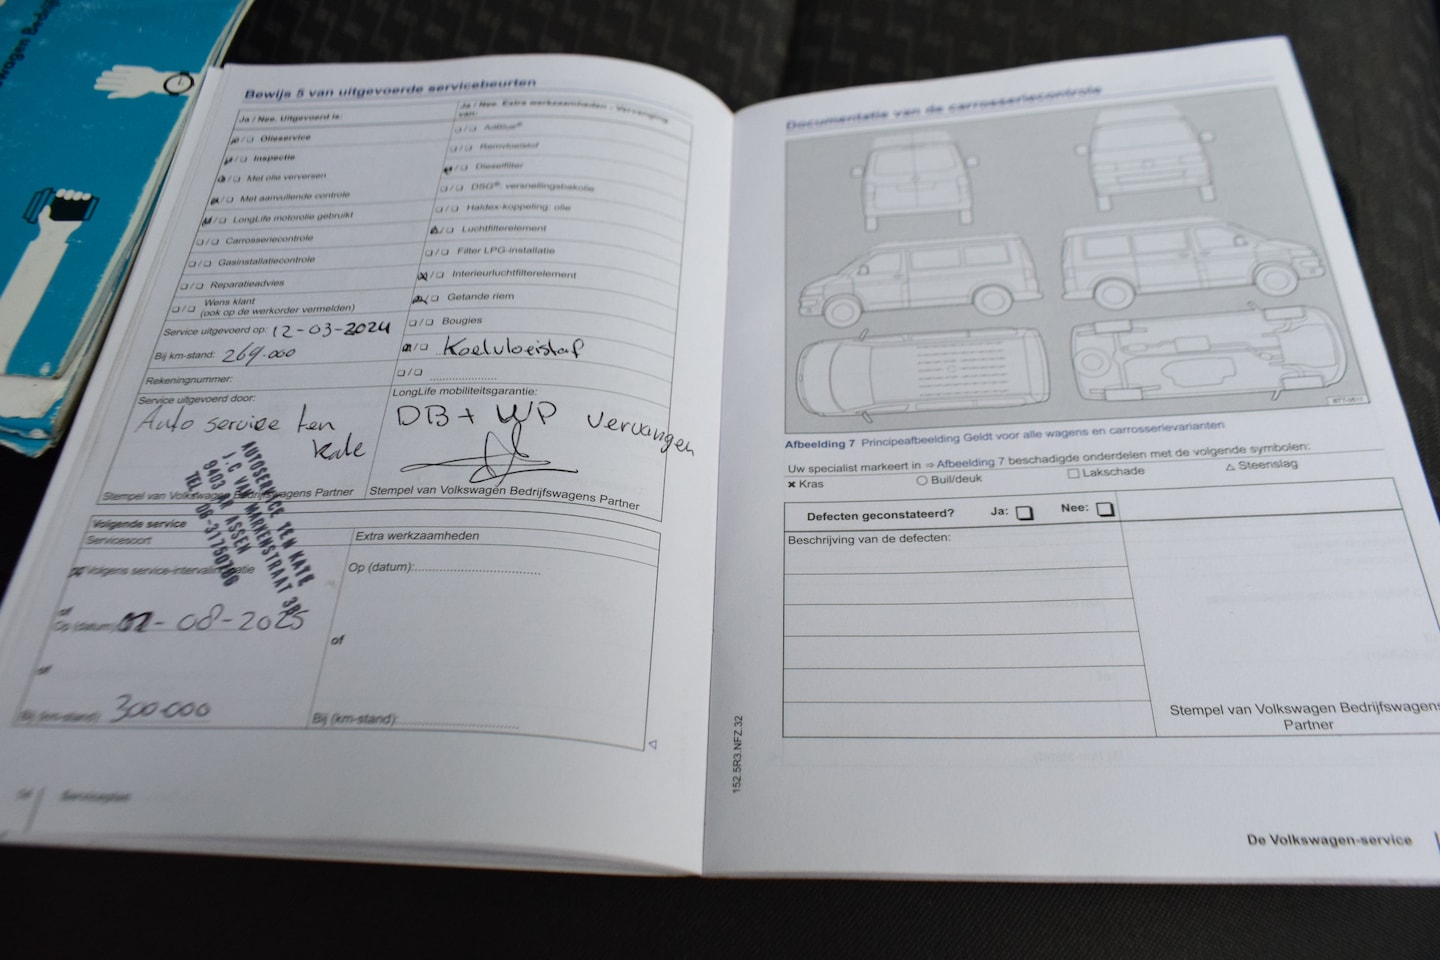 wagen Bedrijf
Bewijs 5 van uitgevoerde servicebeurten
Ja / Nee. Uitgevoerd is:
Olieservice
Inspectie
Met olie verversen
Met aanvullende controle
LongLife motorolie gebruikt
Carrosseriecontrole
Gasinstallatiecontrole
Reparatieadvies
Wens klant
(ook op de werkorder vermelden)
Service uitgevoerd op: 12-03-2024
Bij km-stand: 269.000
Rekeningnummer:
Service uitgevoerd door:
Auto service ten
kate
Stempel van Volkswagen Bedrijfswagens Partner
Ja / Nee. Extra werkzaamheden - Vervanging
van:
AdBlue®
Remvloeistof
Dieselfilter
DSG®: versnellingsbakolie
Haldex-koppeling: olie
Luchtfilterelement
Filter LPG-installatie
Interieurluchtfilterelement
Getande riem
Bougies
Koelvloeistof
LongLife mobiliteitsgarantie:
DB + WP vervangen
Stempel van Volkswagen Bedrijfswagens Partner
AUTOSERVICE TEN KATE
J.C VAN MARKENSTRAAT 3B
9403 AR ASSEN
TEL 06-31750786
Volgende service
Servicesoort
Volgens service-intervalindicatie
of
Op (datum): -08-2025
of
Bij (km-stand): 300.000
Extra werkzaamheden
Op (datum):
of
Bij (km-stand):
Serviceplan
Documentatie van de carrosseriecontrole
Afbeelding 7 Principeafbeelding Geldt voor alle wagens en carrosserievarianten
Uw specialist markeert in ⇒ Afbeelding 7 beschadigde onderdelen met de volgende symbolen:
✖ Kras ○ Buil/deuk □ Lakschade △ Steenslag
Defecten geconstateerd? Ja: Nee:
Beschrijving van de defecten:
Stempel van Volkswagen Bedrijfswagens
Partner
152.5R3.NFZ.32
De Volkswagen-service